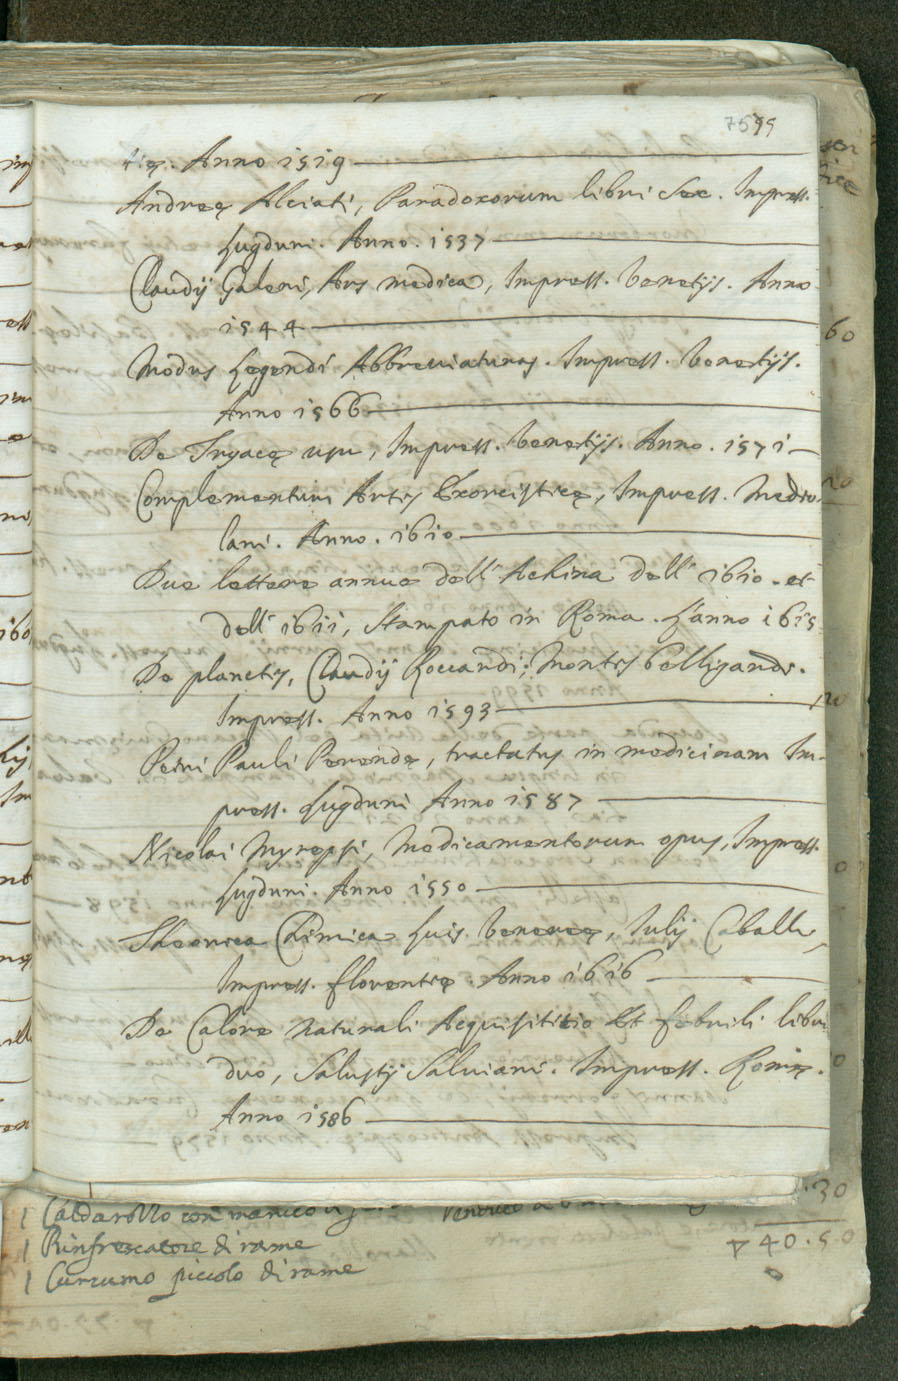 7599
tię. Anno 1519
Andreę Alciati, Paradoxorum libri Sex. Impress.
Lugduni. Anno. 1537
Claudij Galeni, Ars medica, Impress. Venetijs. Anno
1544
Modus Legendi Abbreviaturas. Impress. Venetijs.
Anno 1566
De Tryacę usu, Impress. Venetijs. Anno. 1571
Complementum Artis Exorcisticę, Impress. Medio-
lani. Anno. 1610
Due lettere annue dell' Achina dell' 1610. et
dell' 1611, Stampato in Roma. L'anno 1615
De planetis, Claudij Roccandi; Montis Belligardi.
Impress. Anno 1593
Petri Pauli Peredę, tractatus in medicinam Im-
press. Lugduni Anno 1587
Nicolai Myrepsi, Medicamentorum opus, Impress.
Lugduni. Anno 1550
Theorica Chimica Luis Venereę, Iulij Caballi,
Impress. florentię. Anno 1616
De Calore naturali Acquisititio Et febrili libri
duo, Salustij Salviani. Impress. Romę.
Anno 1586
60
20
20
0
0
.30
40.50
1 Caldarollo con manico
1 Rinfrescatore di rame
1 Cuccumo piccolo di rame